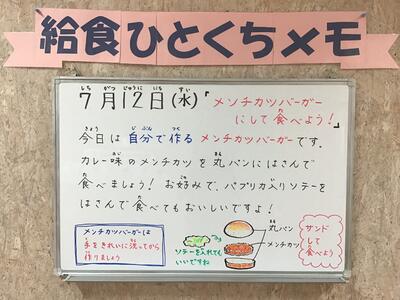 給食ひとくちメモ
7月12日(水)「メンチカツバーガー
にして食べよう!」
今日は自分で作るメンチカツバーガーです。
カレー味のメンチカツを丸パンにはさんで
食べましょう! お好みで、パプリカ入りソテーを
はさんで食べてもおいしいですよ!
メンチカツバーガーは
手をきれいに洗ってから
作りましょう
ソテーを入れても
いいですね
丸パン
メンチカツ
サンド
して
食べよう